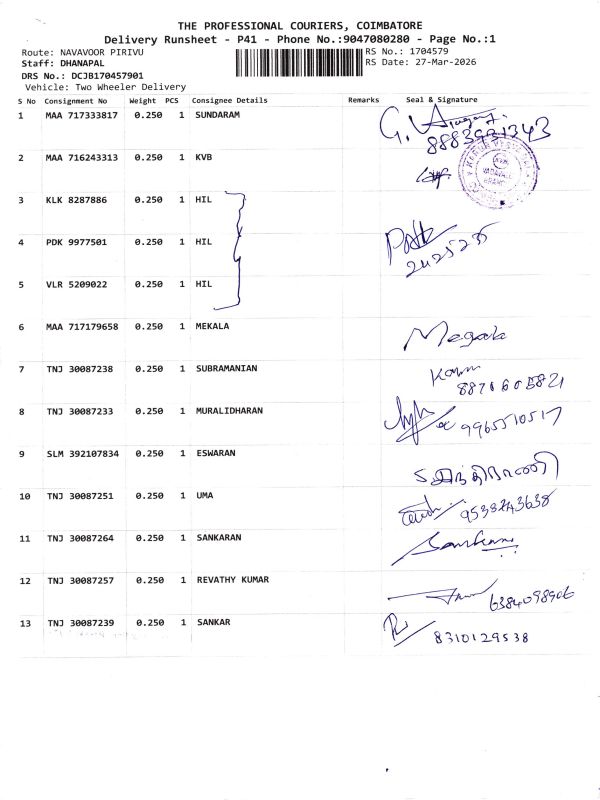 THE PROFESSIONAL COURIERS, COIMBATORE
Delivery Runsheet - P41 - Phone No.:9047080280 - Page No.:1
Route: NAVAVOOR PIRIVU RS No.: 1704579
Staff: DHANAPAL RS Date: 27-Mar-2026
DRS No.: DCJB170457901
Vehicle: Two Wheeler Delivery
S No Consignment No Weight PCS Consignee Details Remarks Seal & Signature
1 MAA 717333817 0.250 1 SUNDARAM
8883931343
2 MAA 716243313 0.250 1 KVB
3 KLK 8287886 0.250 1 HIL
4 PDK 9977501 0.250 1 HIL
5 VLR 5209022 0.250 1 HIL
6 MAA 717179658 0.250 1 MEKALA Megala
7 TNJ 30087238 0.250 1 SUBRAMANIAN
8 TNJ 30087233 0.250 1 MURALIDHARAN 9965510517
9 SLM 392107834 0.250 1 ESWARAN
10 TNJ 30087251 0.250 1 UMA 9538243638
11 TNJ 30087264 0.250 1 SANKARAN Sankaran
12 TNJ 30087257 0.250 1 REVATHY KUMAR 6384098906
13 TNJ 30087239 0.250 1 SANKAR 8310129538